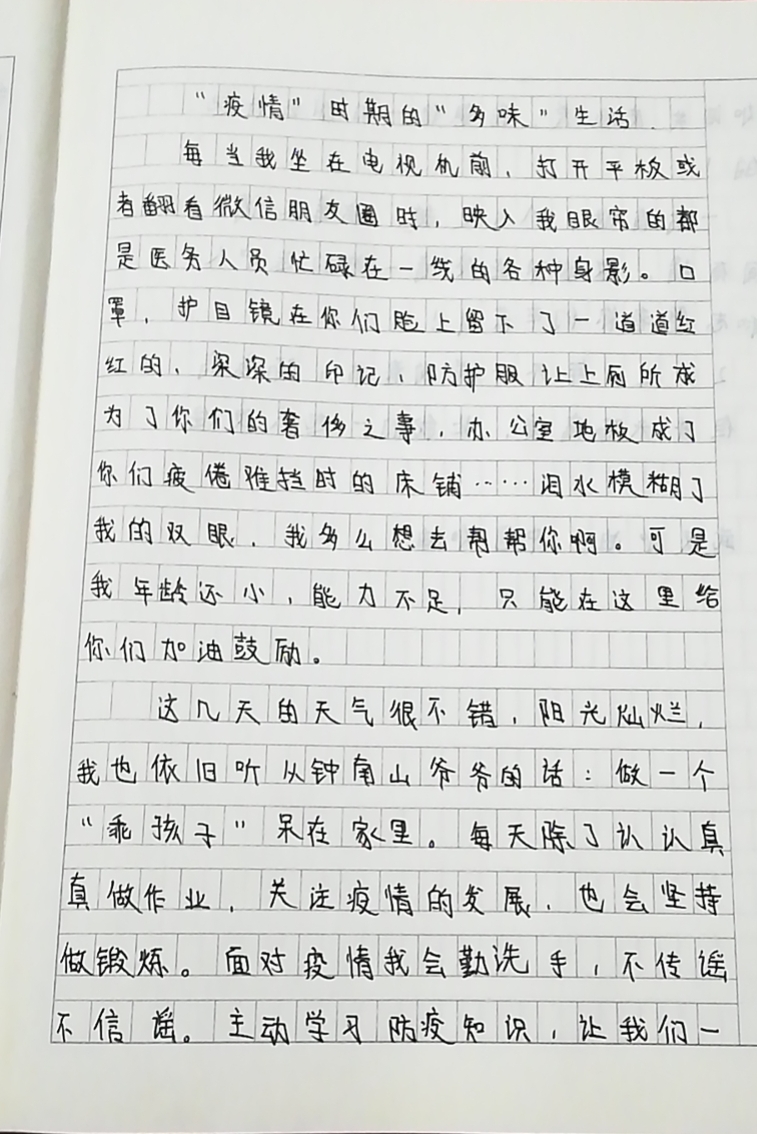 “疫情”时期的“多味”生活
每当我坐在电视机前，打开平板或
者翻看微信朋友圈时，映入我眼帘的都
是医务人员忙碌在一线的各种身影。口
罩，护目镜在你们脸上留下了一道道红
红的、深深的印记，防护服让上厕所成
为了你们的奢侈之事，办公室地板成了
你们疲倦难挡时的床铺……泪水模糊了
我的双眼，我多么想去帮帮你啊。可是
我年龄还小，能力不足，只能在这里给
你们加油鼓励。
这几天的天气很不错，阳光灿烂，
我也依旧听从钟南山爷爷的话：做一个
“乖孩子”呆在家里。每天除了认认真
真做作业，关注疫情的发展，也会坚持
做锻炼。面对疫情我会勤洗手，不传谣
不信谣。主动学习防疫知识，让我们一